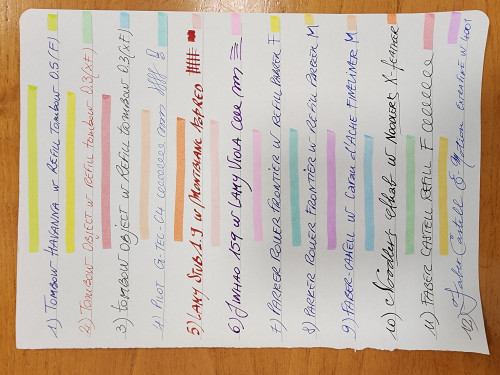 1) TOMBOW HAVANNA W REFILL TOMBOW 0.5 (F)
2) TOMBOW OBJECT W REFILL TOMBOW 0.3 (XF)
3) TOMBOW OBJECT W REFILL TOMBOW 0.3 (XF)
4) PILOT G-TEC-C4
5) LAMY STUB 1.9 W/ MONTBLANC RED
6) JINHAO 159 W LAMY VIOLA
7) PARKER ROLLER FRONTIER W REFILL PARKER F
8) PARKER ROLLER FRONTIER W REFILL PARKER M
9) FABER-CASTELL W CARAN d'ACHE FINELINER M
10) Noodlers W NOODLERS X-FEATHER
11) FABER CASTELL REFILL F
12) Faber Castell E-Motion